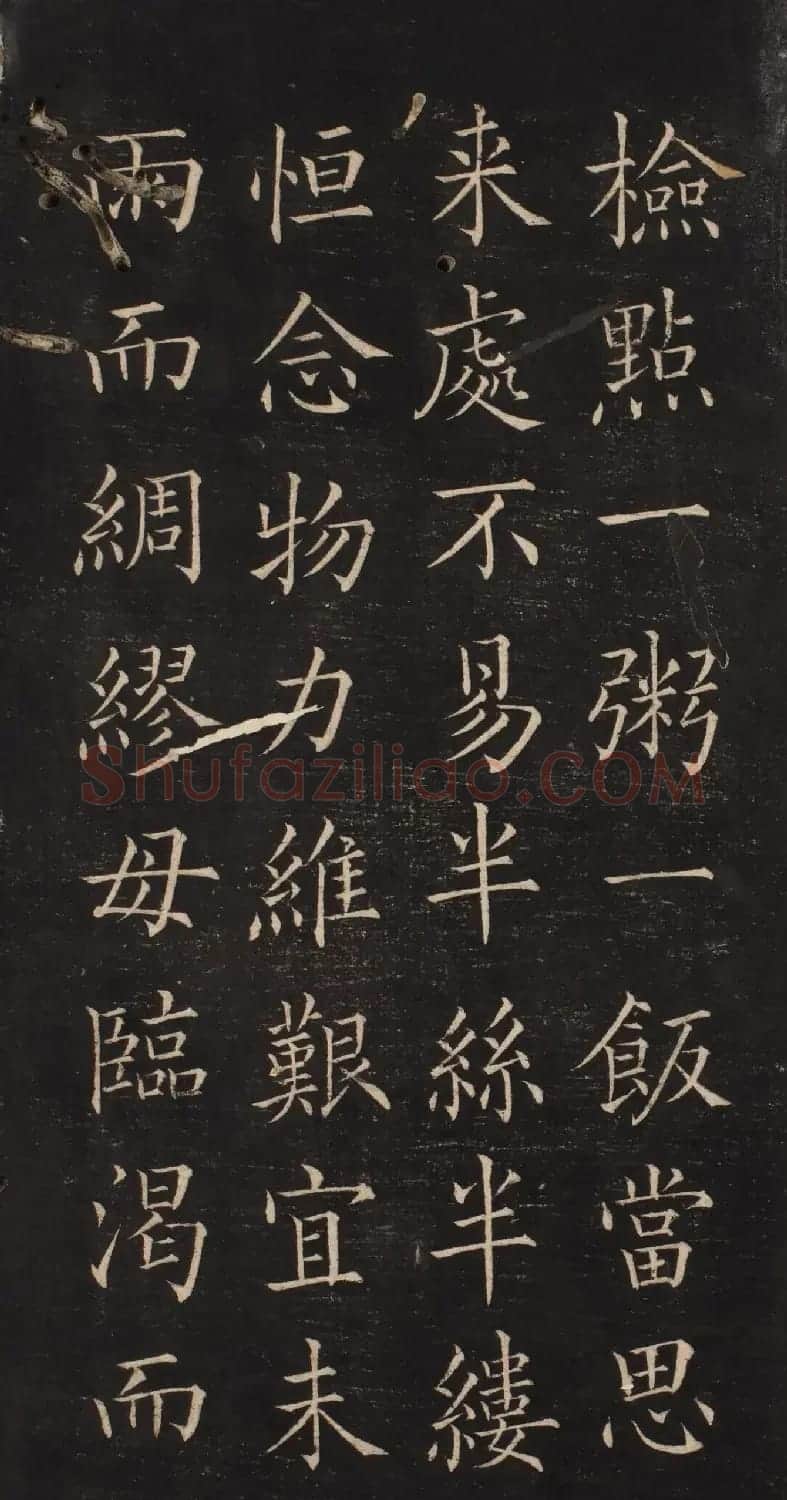 檢點一粥一飯當思
来處不易半絲半縷
恒念物力維艱宜未
雨而綢繆毋臨渴而
Shufaziliao.COM